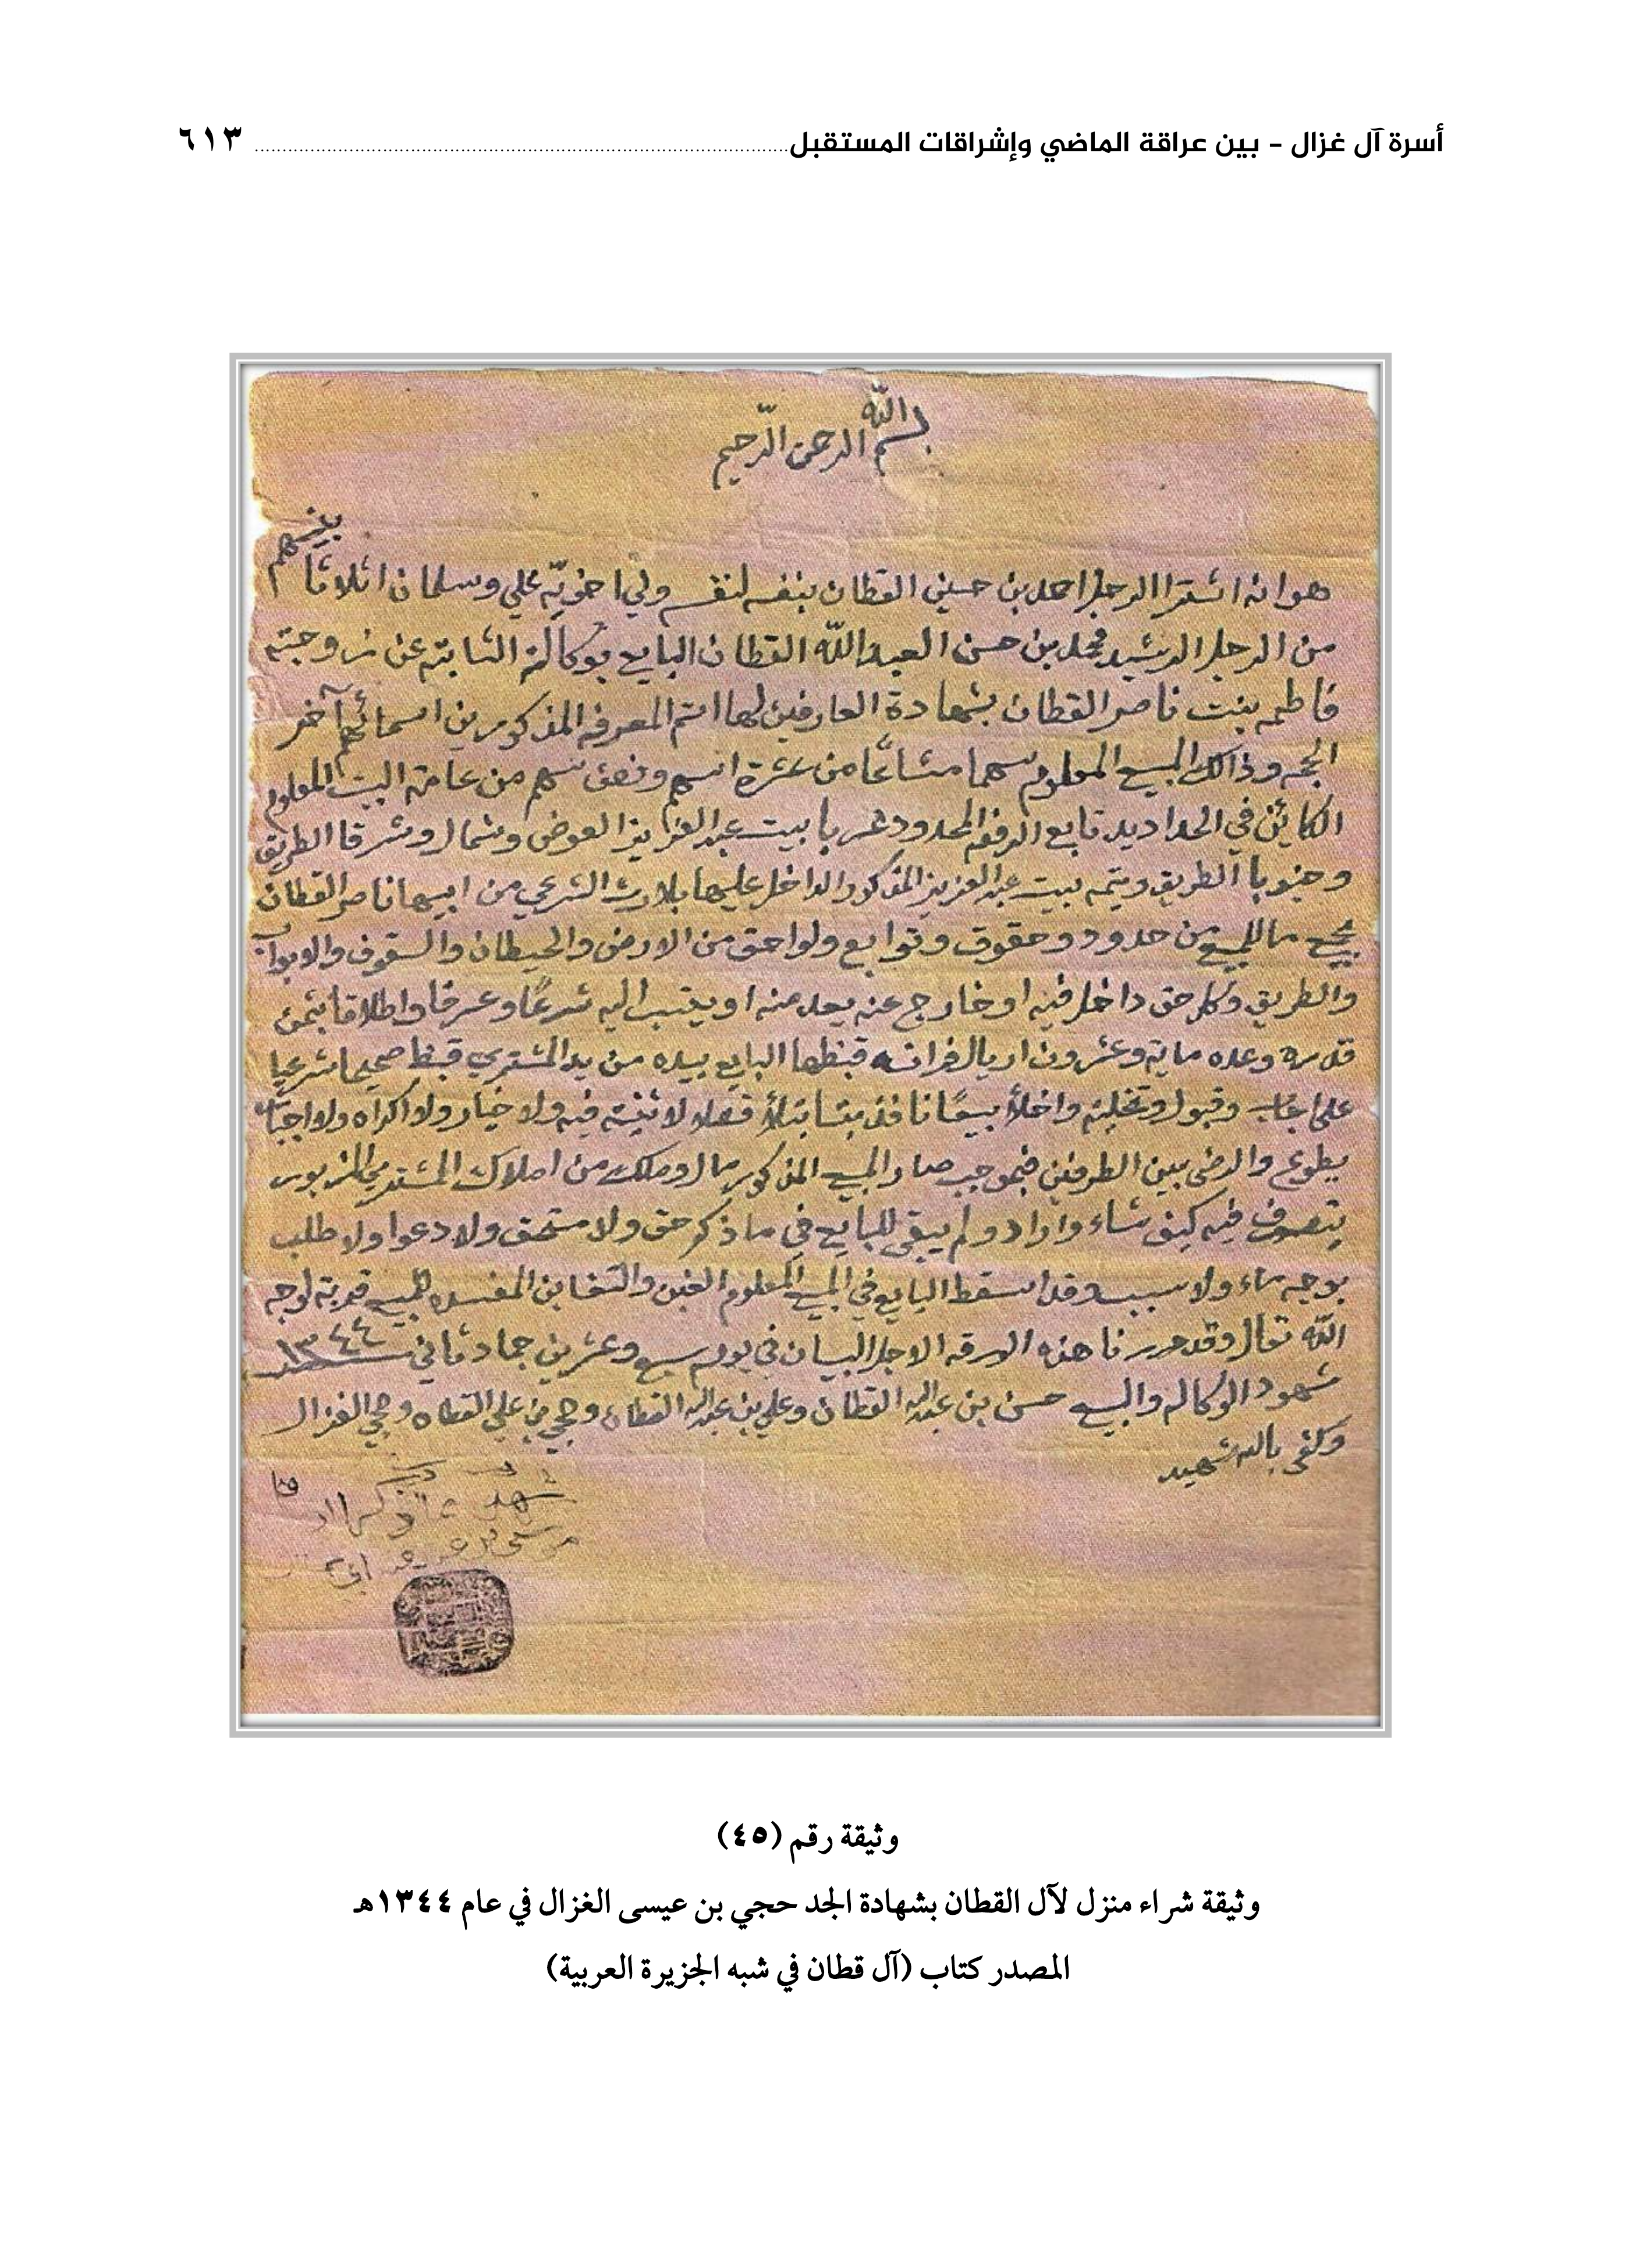 أسرة آل غزال - بين عراقة الماضي وإشراقات المستقبل ٦١٣
بسم الله الرحمن الرحيم
بينهم
هو انه اشترا الرجل احمد بن حسين القطان بنفسه لنفسه ولي اخويه علي وسلمان اثلاثا
من الرجل الرشيد محمد بن حسن العبدالله القطان البايع بوكالته الثابته عن زوجته
فاطمه بنت ناصر القطان بشهادة العارفين لها اتم المعرفه المذكورين اسمائهم آخر
الحجه وذالك المبيع المعلوم سهما مشاعًا من عشرة اسهم ونصف سهم من عامة البيت المعلوم
الكائن في الحداديد تابع الرفعه المحدود غربا بيت عبد العزيز العوض وشمال وشرقا الطريق
وجنوبا الطريق ويتمه بيت عبد العزيز المذكور الداخل عليها بلارث الشرعي من ابيها ناصر القطان
بجميع ما للمبيع من حدود وحقوق وتوابع ولواحق من الارض والحيطان والسقوف والابواب
والطريق وكل حق داخل فيه او خارج عنه يعد منه او ينتسب اليه شرعًا وعرفا واطلاقا بثمن
قدره وعده مايه وعشرون اريال فرانسه قبظها البايع بيده من يد المشتري قبظا صحيحا شرعيا
على ايجاب وقبول وتخليه واخلأ بيعًا نافذ بتا بتلأ فصلا لا ثنية فيه ولا خيار ولا اكراه ولا اجبار
بطوع والرضى بين الطرفين فبموجبه صار المبيع المذكور مال وملك من املاك المشتري المزبور
يتصرف فيه كيف شاء واراد ولم يبقى للبايع في ما ذكر حق ولا مستحق ولا دعوا ولا طلب
بوجه ماء ولا سبب وقد اسقط البايع في المبيع المعلوم الغبن والتغابن المفسده للمبيع قربة لوجه
الله تعال وقد حررنا هذه الورقه الاجل البيان في يوم سبع وعشرين جماد ثاني سنه ١٣٤٤
شهود الوكاله والبيع حسن بن عبدالله القطان وعلي بن عبدالله القطان وحجي بن علي القطان وحجي الغزال
وكفى بالله شهيد
شهد بما ذكر
وثيقة رقم (٤٥)
وثيقة شراء منزل لآل القطان بشهادة الجد حجي بن عيسى الغزال في عام ١٣٤٤هـ
المصدر كتاب (آل قطان في شبه الجزيرة العربية)